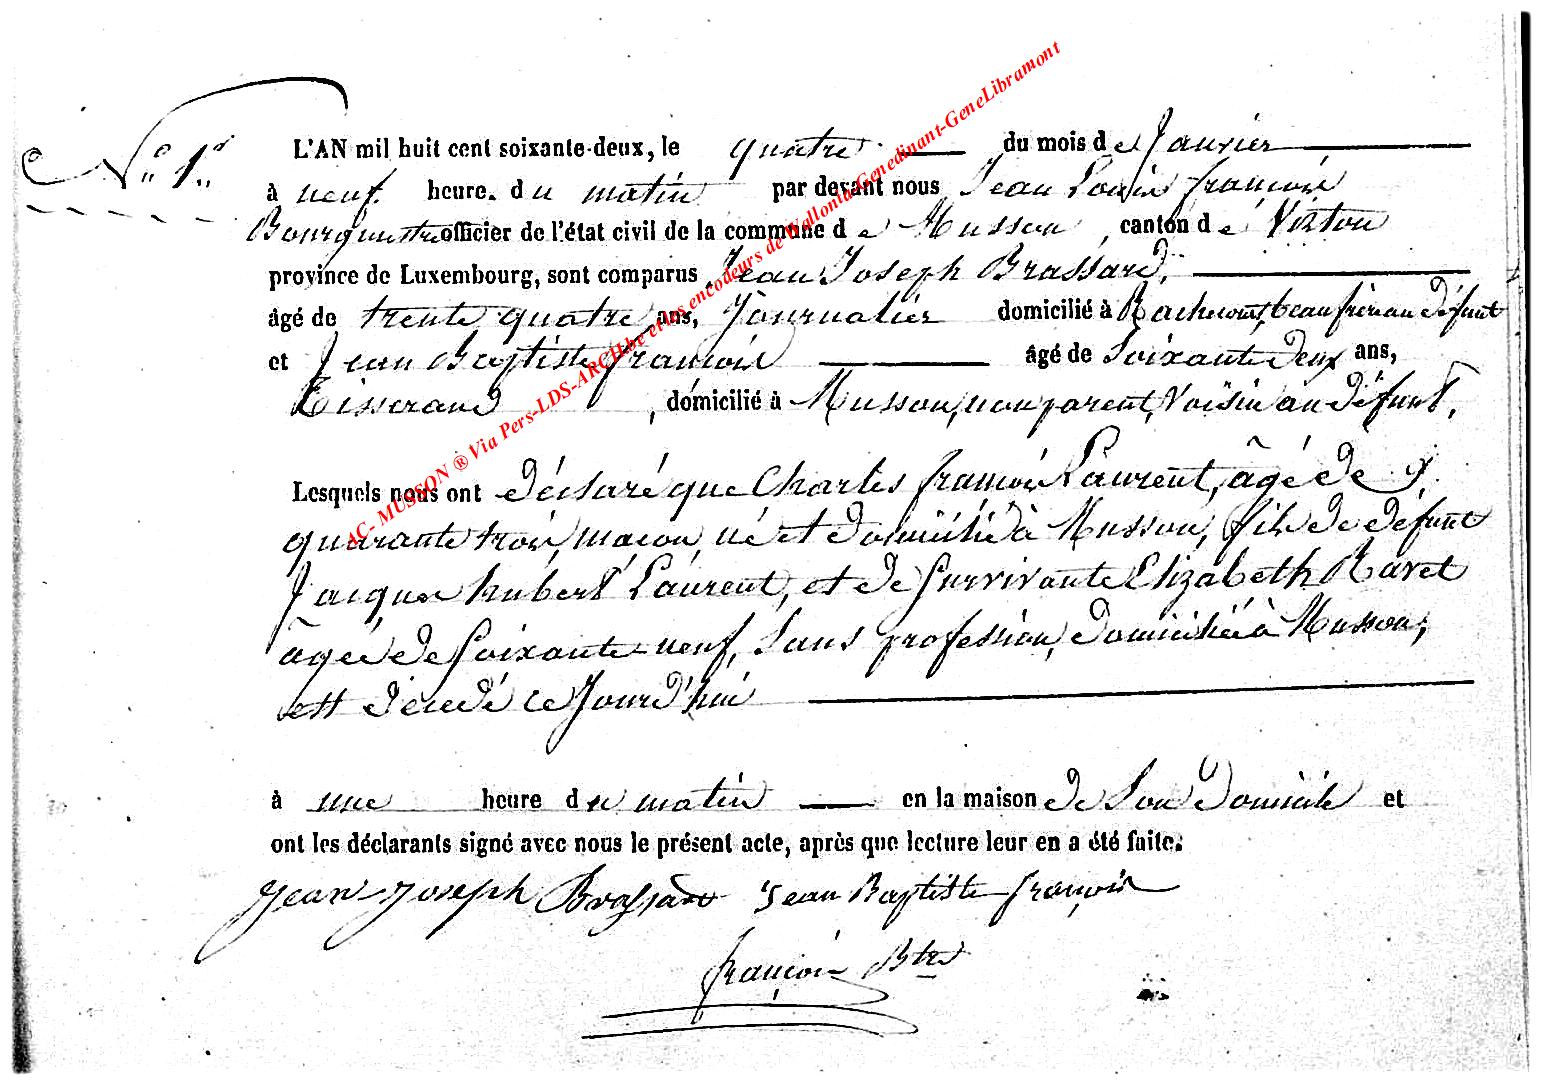 N° 1er
L'AN mil huit cent soixante-deux, le quatre du mois de Janvier
à neuf heure. du matin par devant nous Jean Louis françois
Bourgumstre officier de l'état civil de la commune de Musson, canton de Virton
province de Luxembourg, sont comparus Jean Joseph Brassard,
âgé de trente quatre ans, Journalier domicilié à Rachecourt, beau frère au défunt
et Jean Baptiste françois âgé de Soixante deux ans,
Tisserand, domicilié à Musson, non parent, Voisin au défunt,
Lesquels nous ont déclaré que Charles françois Laurent, âgé de
quarante trois, maçon, né et domicilié à Musson, fils de défunt
Jacques hubert Laurent, et de Survivante Elizabeth Ravet
âgée de Soixante-neuf, Sans profession, domiciliée à Musson,
est décédé ce Jourd'hui
à une heure du matin en la maison de Son domicile et
ont les déclarants signé avec nous le présent acte, après que lecture leur en a été faite.
Jean Joseph Brassard Jean Baptiste françois
françois Btre
AC- MUSSON ® Via Pers-LDS-ARCH.be et les encodeurs de Wallonia-Genedinant-GeneLibramont